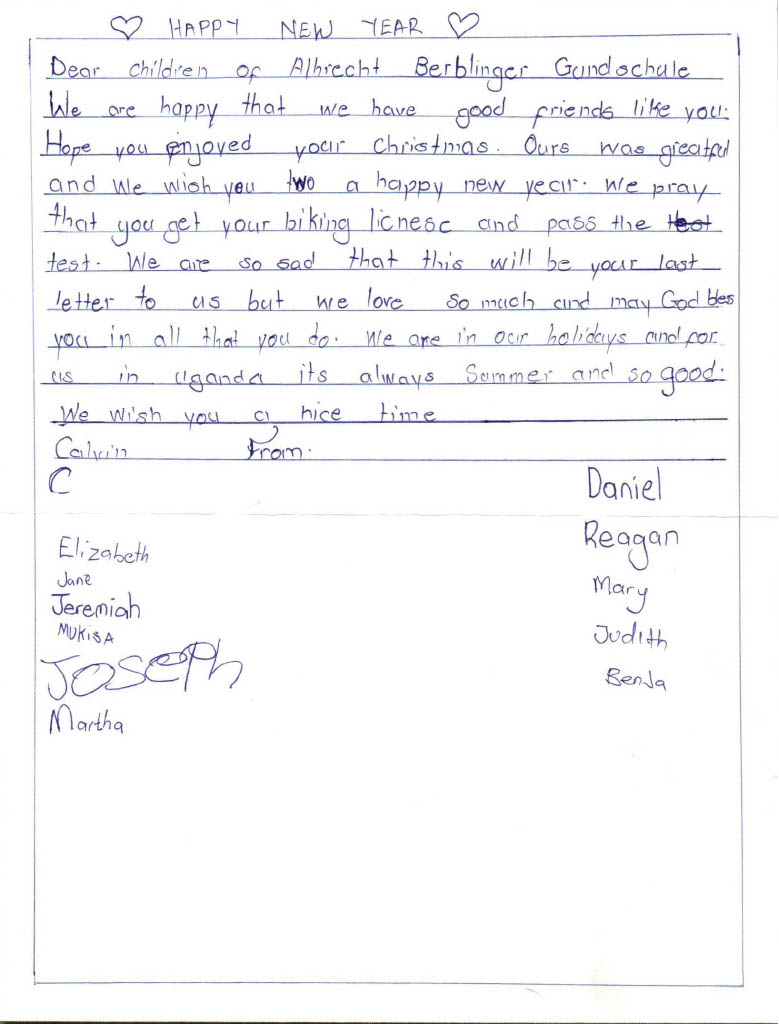 ♡ HAPPY NEW YEAR ♡
Dear children of Albrecht Berblinger Gundschule
We are happy that we have good friends like you.
Hope you enjoyed your Christmas. Ours was greatful
and we wish you two a happy new year. We pray
that you get your biking licnesc and pass the test
test. We are so sad that this will be your last
letter to us but we love so much and may God bles
you in all that you do. We are in our holidays and for
us in uganda its always Summer and so good.
We wish you a nice time
Calvin From.
C Daniel
Reagan
Elizabeth
Jane
Mary
Jeremiah
MUKISA Judith
JOSEPH Benja
Martha